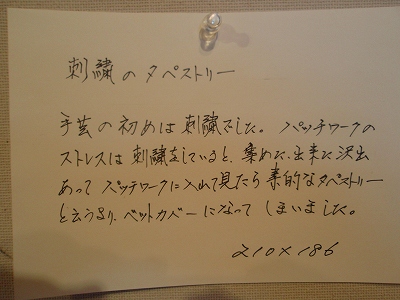 刺繍のタペストリー
手芸の初めは刺繍でした。パッチワークの
ストレスは刺繍をしていると、集めた、出来た沢山
あってパッチワークに入れて見たら素的なタペストリー
と云うより、ベットカバーになってしまいました。
210×186